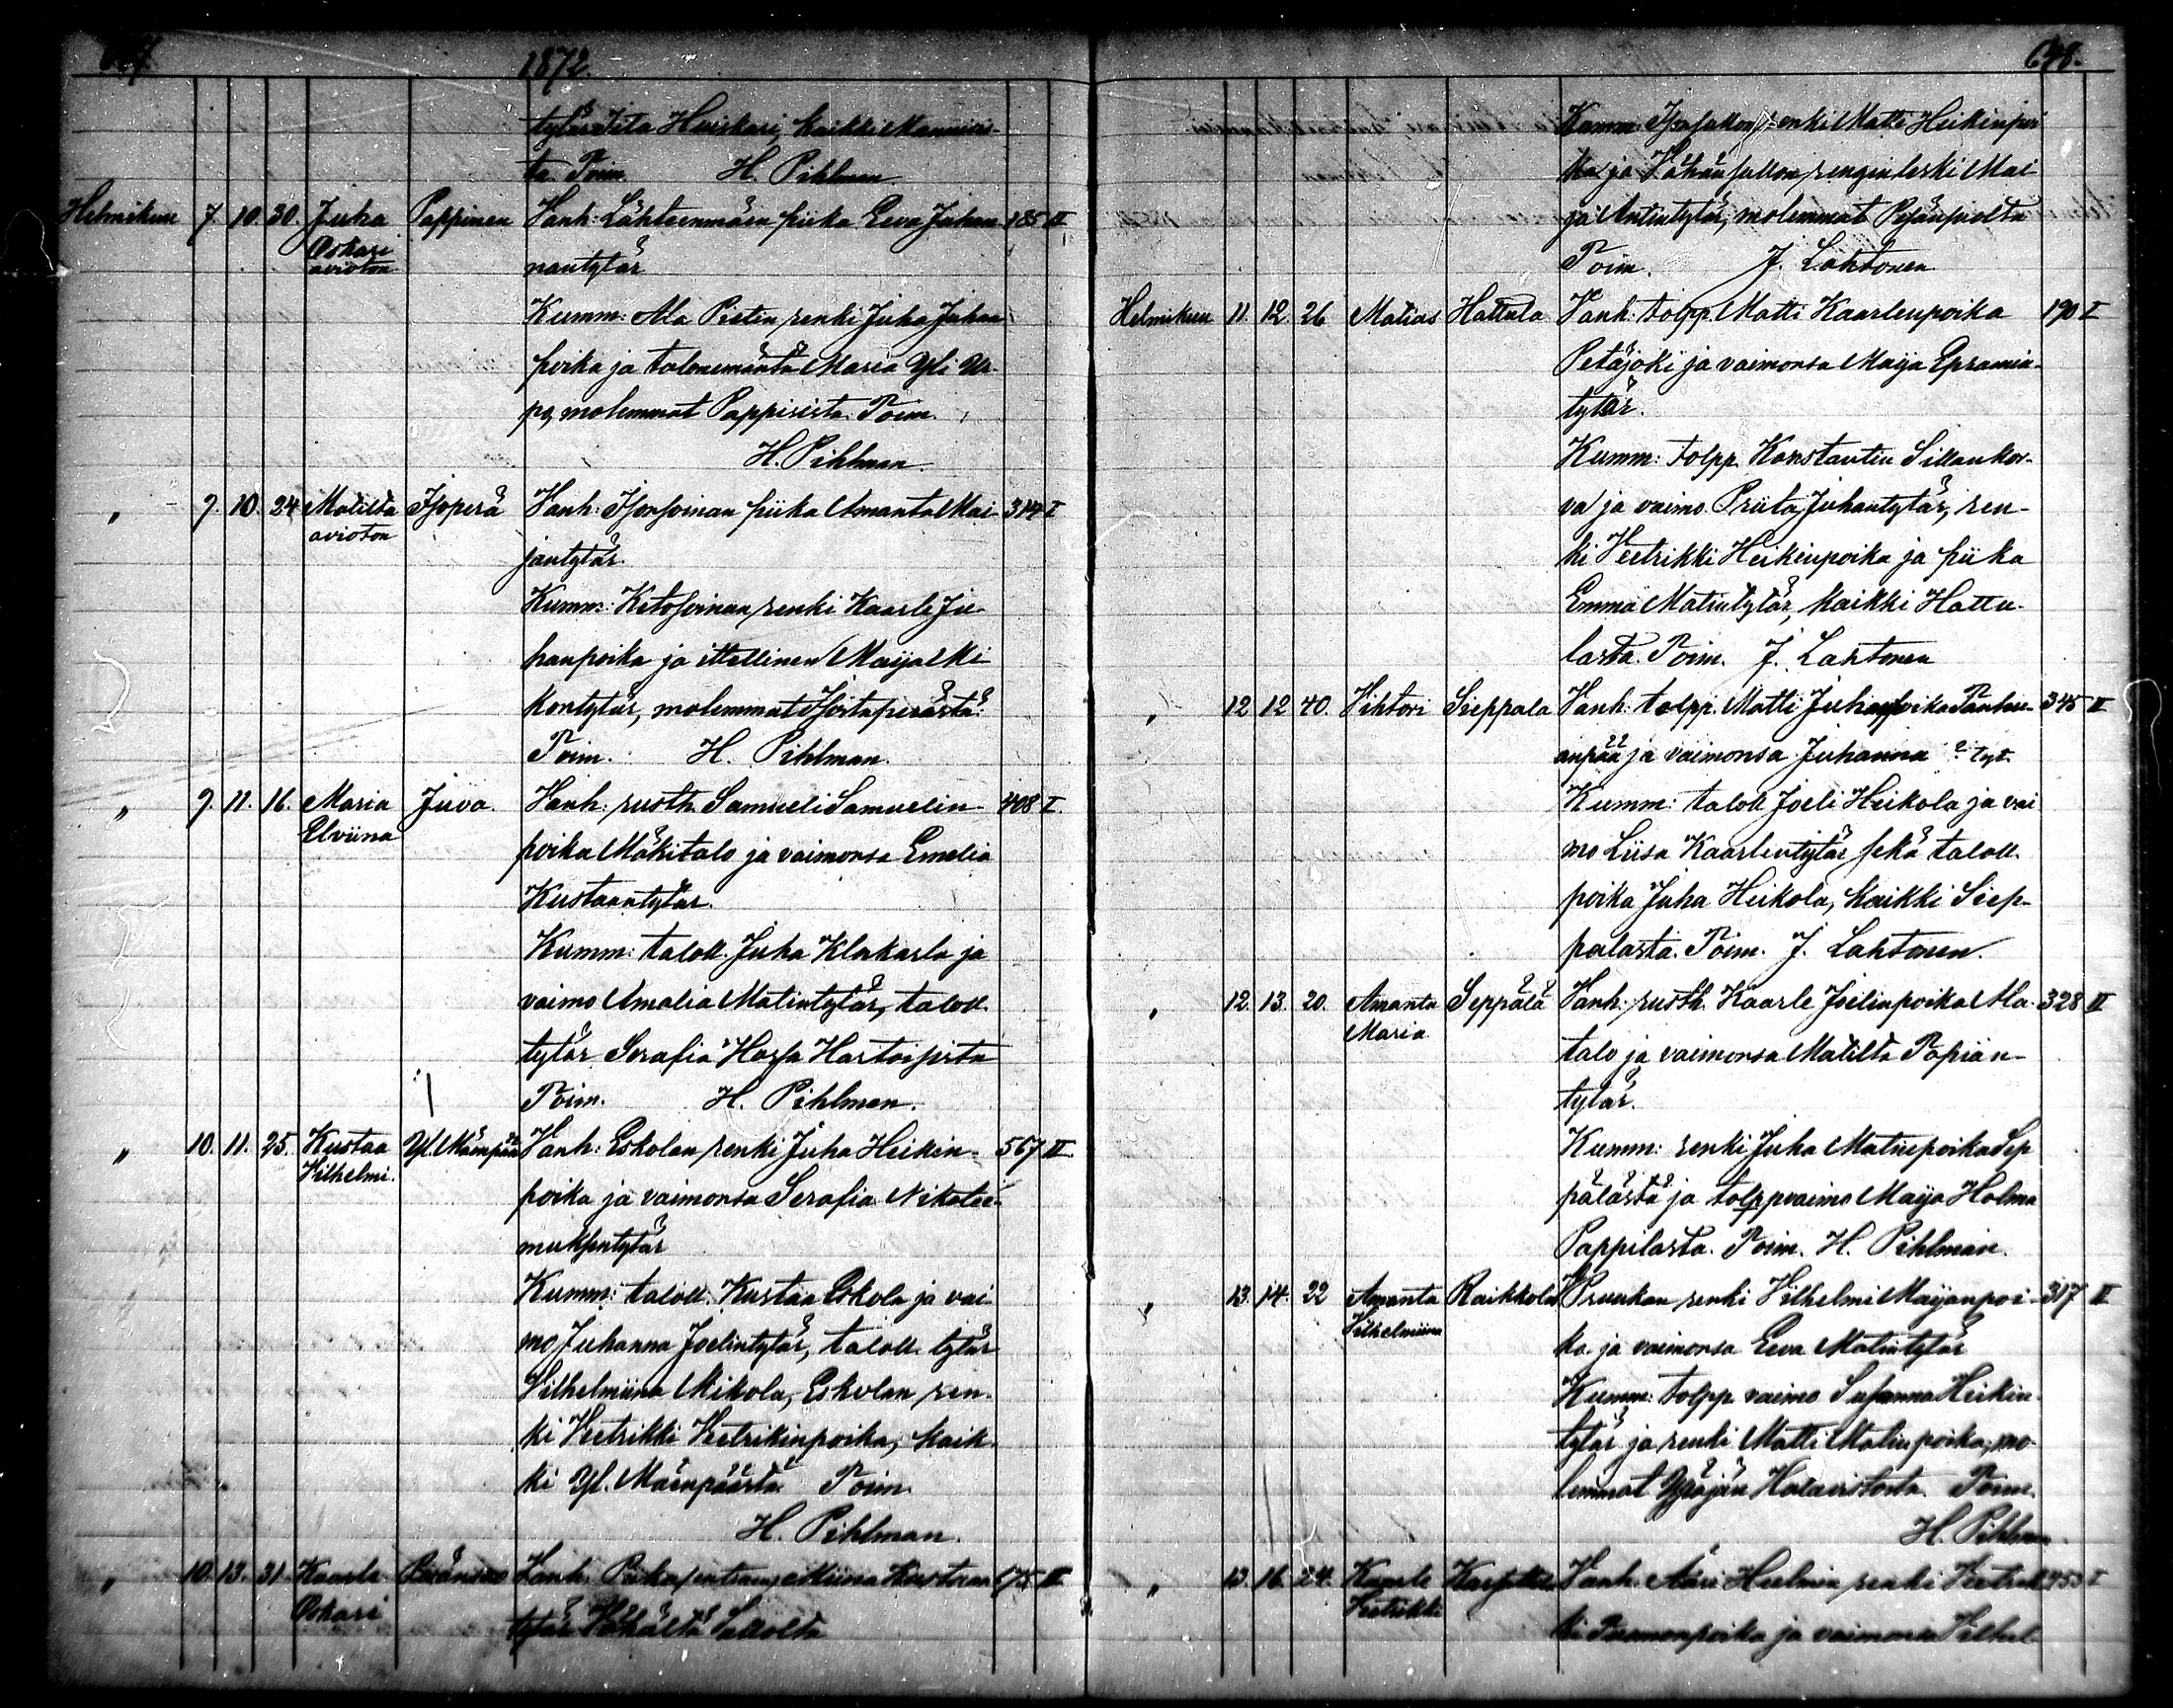 1872.
tytär Iita Huiskari, kaikki Mannis-
ta. Toim. H. Pihlman.
Helmikuu 7. 10. 30. Juha Pappinen Vanh: Lähteenmäen piika Eeva Juhan- 185 II
Oskari
avioton nantytär
Kumm: Ala Pietin renki Juha Juhan
poika ja talonemäntä Maria Yli Ur-
po, molemmat Pappisista. Toim.
H. Pihlman
" 9. 10. 24 Matilta Isoperä Vanh: Isonsoinan piika Amanta Mai- 314 I
avioton jantytär.
Kumm: Ketosoinan renki Kaarle Ju-
hanpoika ja itsellinen Maija Mi-
kontytär, molemmat Isostaperästä.
Toim. H. Pihlman.
" 9. 11. 16. Maria Juva. Vanh: rusth. Samueli Samuelin- 408 I.
Elviina poika Mäkitalo ja vaimonsa Emelia
Kustaantytär.
Kumm: taloll. Juha Klakarla ja
vaimo Amalia Matintytär, taloll.
tytär Serafia Harja Hartoisista
Toim. H. Pihlman.
" 10. 11. 25. Kustaa Yl. Mäenpää Vanh: Eskolan renki Juha Heikin- 567 II
Vilhelmi. poika ja vaimonsa Serafia Nikotee-
muksentytär
Kumm: taloll. Kustaa Eskola ja vai
mo Juhanna Joelintytär, taloll. tytär
Vilhelmiina Mikola, Eskolan ren-
ki Veetrikki Veetrikinpoika, kaik-
ki Yl. Mäenpäästä. Toim.
H. Pihlman.
" 10. 13. 31. Kaarle Vanh: Miina Kustaan 675 II
Oskari tytär Sallolta
648.
Kumm: Isosallon renki Matti Heikinpoi
ka ja Vähänsallon renginleski Mai
ja Antintytär, molemmat
Toim. J. Lahtonen
Helmikuu 11. 12. 26 Matias Hattula Vanh: tolpp. Matti Kaarlenpoika 190 I
Petäjoki ja vaimonsa Maija Epramin-
tytär.
Kumm: tolpp. Konstantin Sillankor-
va ja vaimo Priita Juhantytär, ren-
ki Veetrikki Heikinpoika ja piika
Emma Matintytär, kaikki Hattu-
lasta. Toim. J. Lahtonen
" 12 12 40. Vihtori Sieppala Vanh: tolpp. Matti Juhanpoika Tanhu- 345 II
anpää ja vaimonsa Juhanna ? tyt.
Kumm: taloll Joeli Heikola ja vai
mo Liisa Kaarlentytär sekä taloll.
poika Juha Heikola, kaikki Siep-
palasta. Toim. J. Lahtonen.
" 12. 13. 20. Amanta Seppälä Vanh: rusth. Kaarle Joelinpoika Ala- 328 II
Maria talo ja vaimonsa Matilta Topiän-
tytär.
Kumm: renki Juha Matinpoika Sep
pälästä ja tolppvaimo Maija Holma
Pappilasta. Toim. H. Pihlman.
" 13. 14. 22 Amanta Raikkola Pruukan renki Vilhelmi Maijanpoi- 317 II
Vilhelmiina ka ja vaimonsa Eeva Matintytär
Kumm: tolpp. vaimo Susanna Heikin-
tytär ja renki Matti Matinpoika, mo
lemmat Ypäjän Kalavistosta. Toim.
H. Pihlman.
" 13. 16. 24. Kaarle Vanh: renki Veetrik
Veetrikki ki ja vaimonsa Vilhel